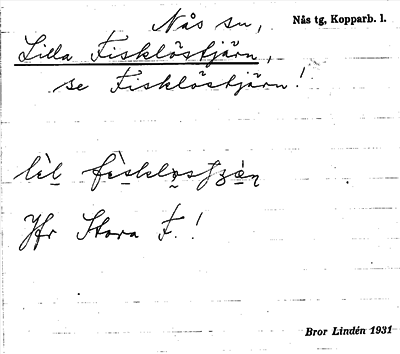 Nås sn,
Nås tg, Kopparb. l.
Lilla Fisklöstjärn,
se Fisklöstjärn!
Jfr Stora F.!
Bror Lindén 1931